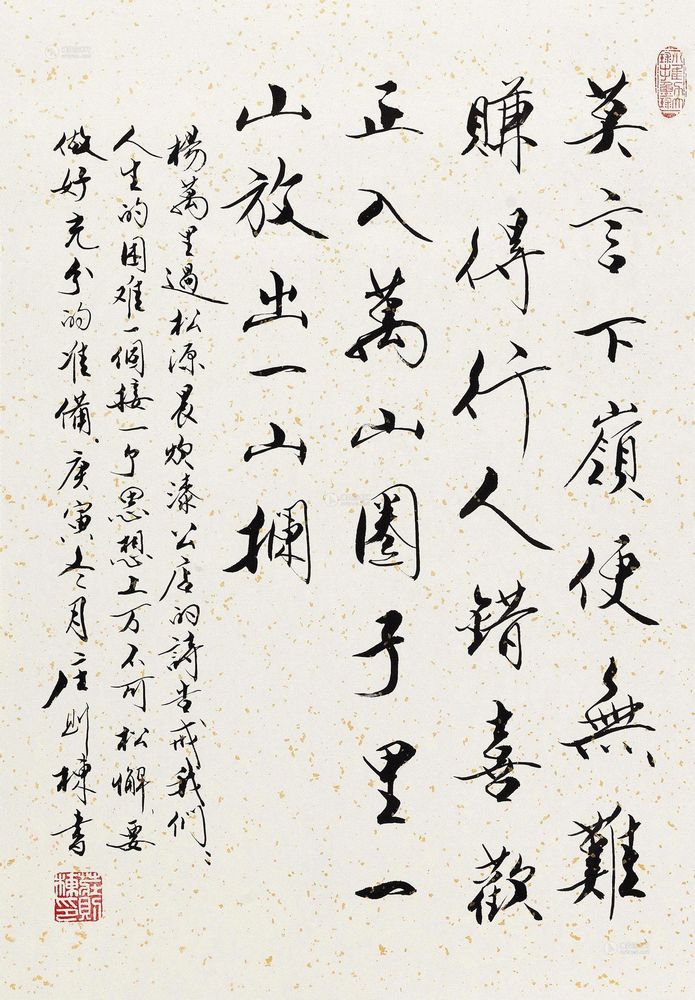 莫言下嶺便無難
賺得行人錯喜歡
正入萬山圈子里一
山放出一山攔
楊萬里過松源晨炊漆公店的詩告戒我們：
人生的困难一個接一个思想上万不可松懈要
做好充分的准備、庚寅冬月庄则棟書
莊則棟印